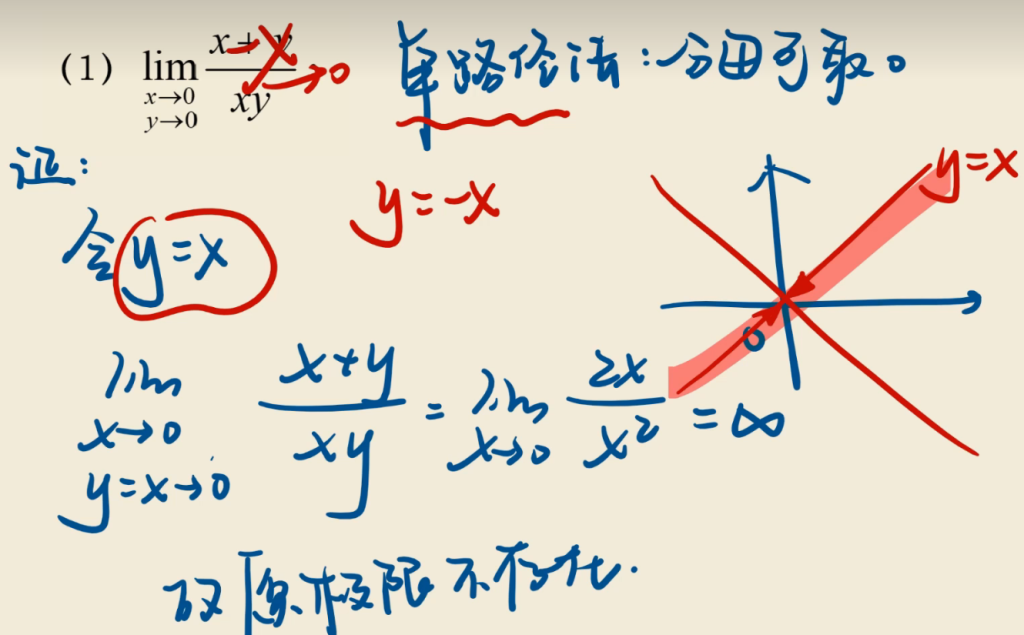 (1) lim x→0 y→0 (x+y)/(xy) →0 单路径法:分母可取0
证:
令 y=x y=-x y=x
0
lim x→0 y=x→0 (x+y)/(xy) = lim x→0 2x/x² = ∞
故原极限不存在.